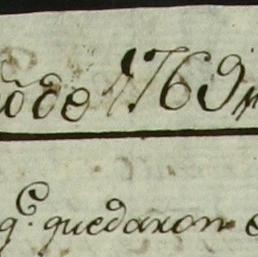 de 1769
q.e quedaron